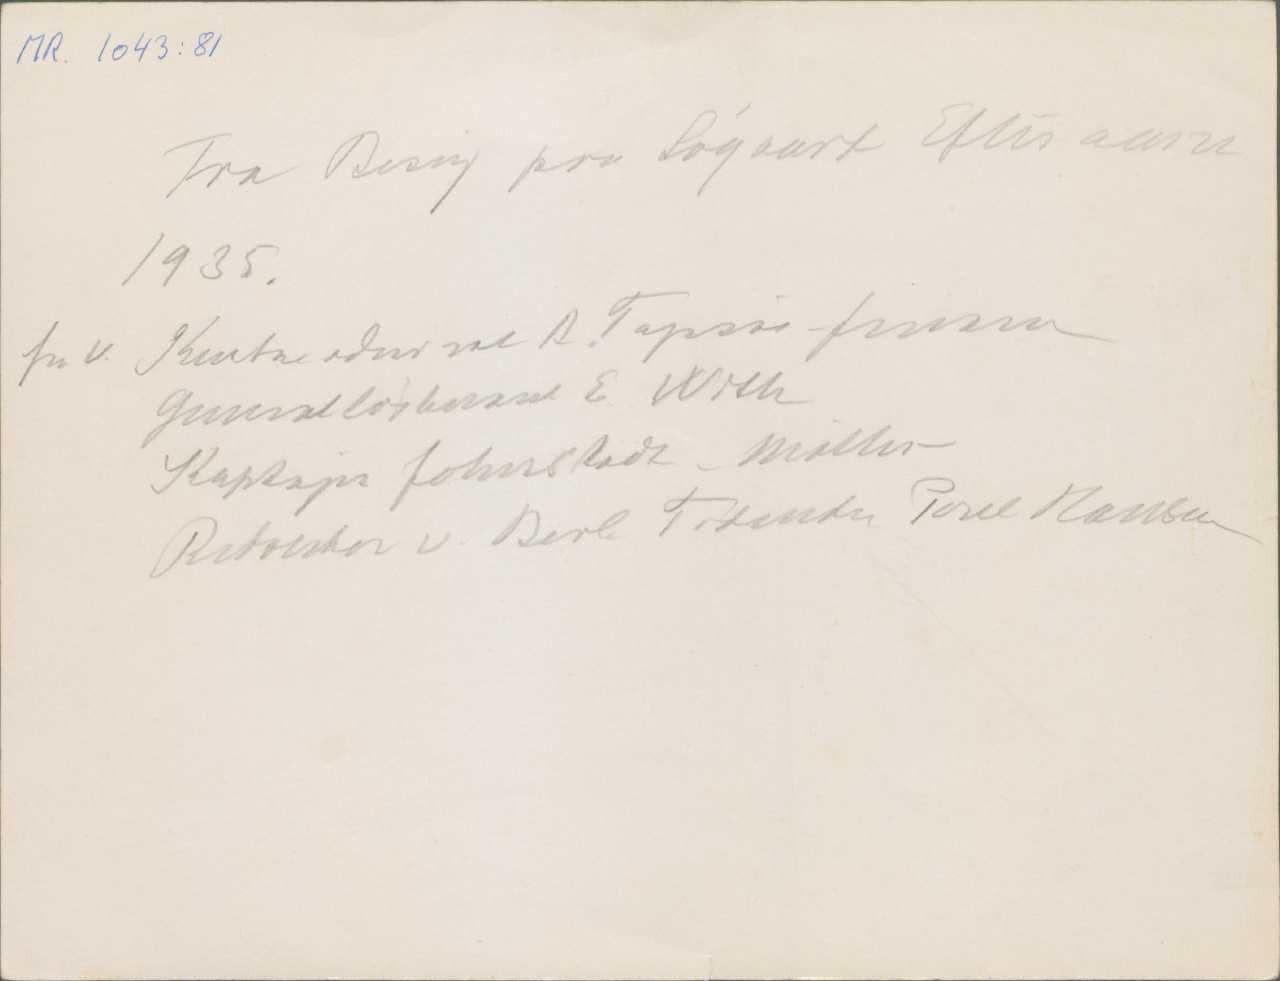 MR. 1043:81
Fra Besøg paa Søgaard Efteraaret
1935.
fr. v. Kontreadmiral A. Topsøe-Jensen
Generalløjtnant E. With
Kaptajn Johnstadt-Møller
Redaktør v. Berl. Tidende Povl Hansen